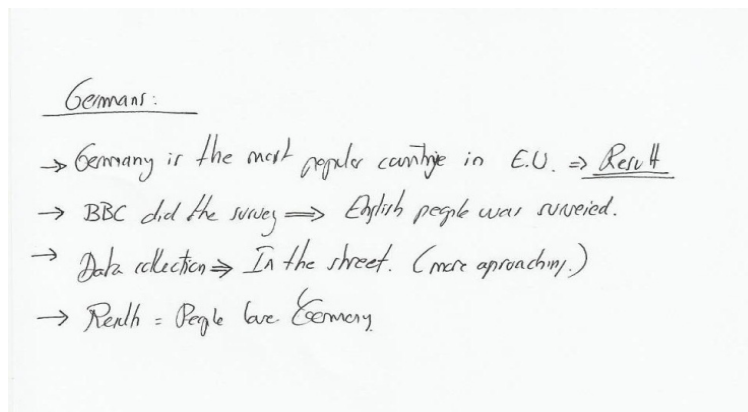 Germans:
→ Germany is the most popular countrje in E.U. ⇒ Result
→ BBC did the survey ⇒ English people was surveied.
→ Data collection ⇒ In the street. (more aproaching.)
→ Result = People love Germany